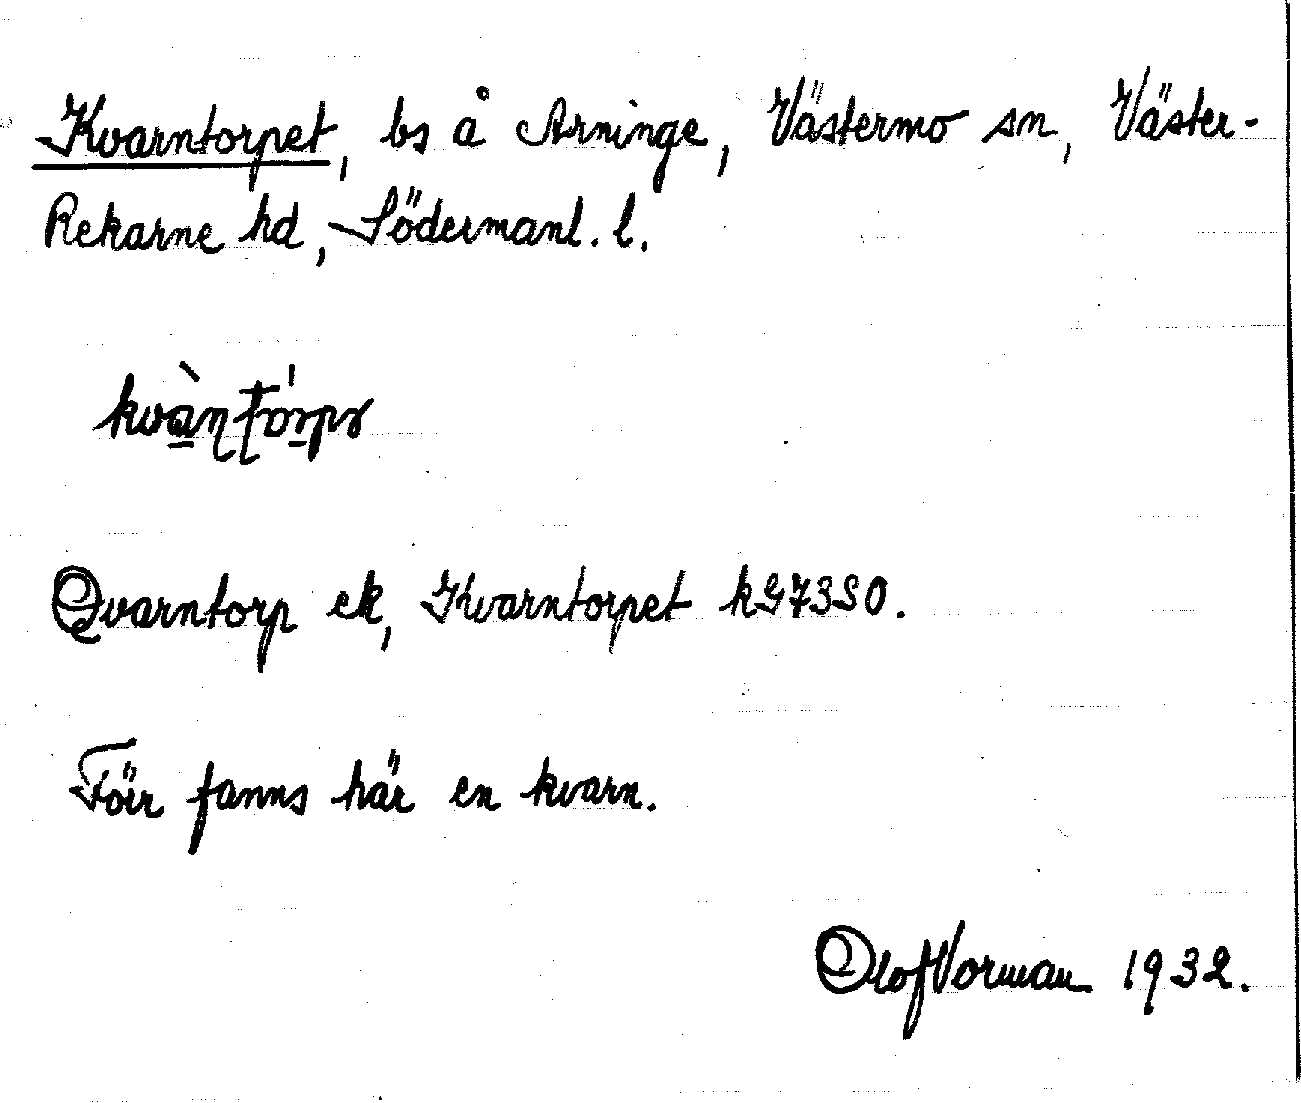 Kvarntorpet, bs å Arninge, Västermo sn, Väster-
Rekarne hd, Södermanl. l.
Qvarntorp ek, Kvarntorpet kG73SO.
Förr fanns här en kvarn.
Olof Vorman 1932.